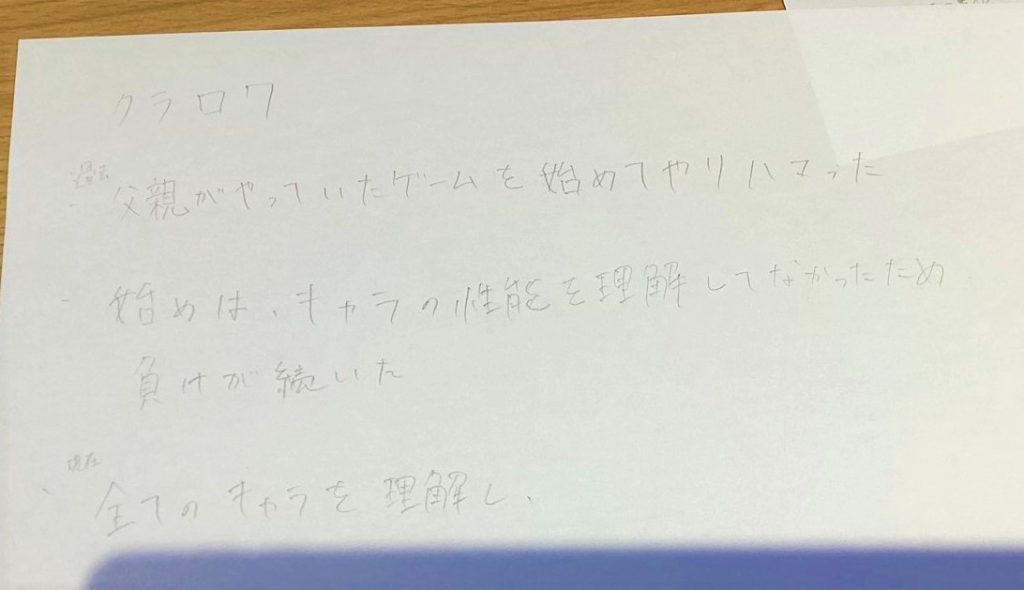 クラロワ
過去
・父親がやっていたゲームを始めてやりハマった
・始めは、キャラの性能を理解してなかったため
負けが続いた
現在
・全てのキャラを理解し、